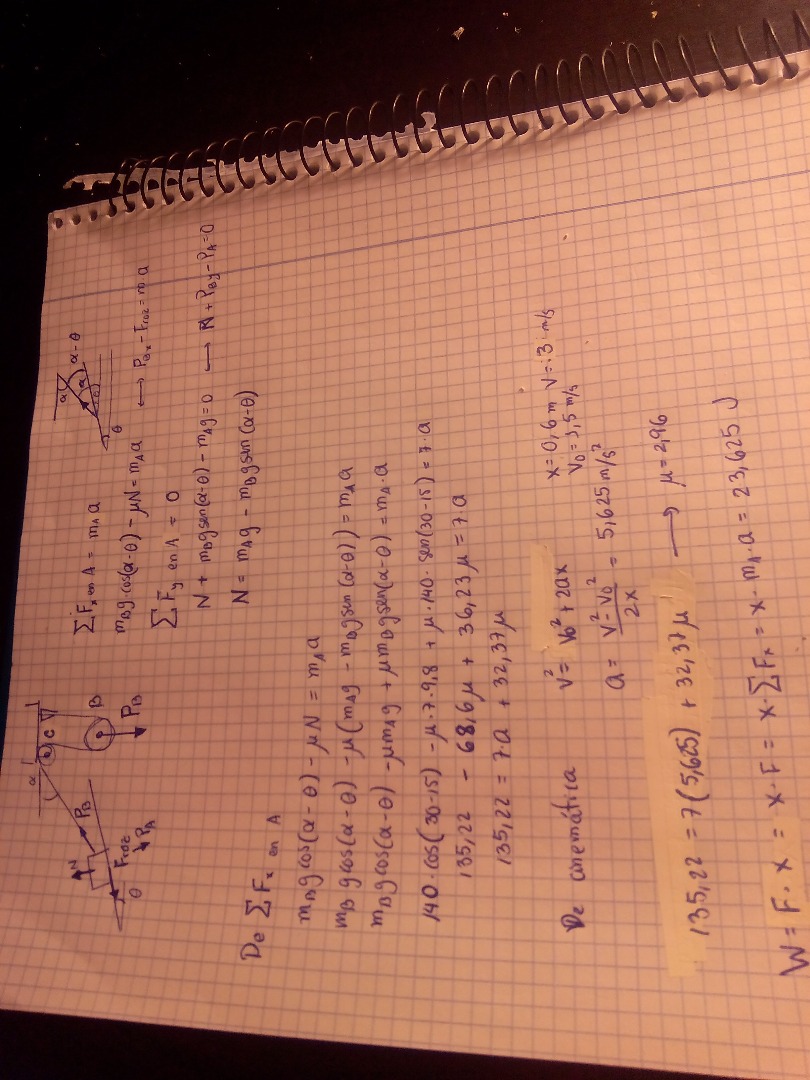 α C B P_B
N P_B F_roz P_A θ
α α α-θ θ θ
∑F_x en A = m_A a
m_B g·cos(α-θ) - μN = m_A a ⟷ P_Bx - F_roz = m·a
∑F_y en A = 0
N + m_B g sen(α-θ) - m_A g = 0 ⟶ N + P_By - P_A = 0
N = m_A g - m_B g sen(α-θ)
De ∑F_x en A
m_B g cos(α-θ) - μN = m_A a
m_B g cos(α-θ) - μ(m_A g - m_B g sen(α-θ)) = m_A a
m_B g cos(α-θ) - μ m_A g + μ m_B g sen(α-θ) = m_A·a
140·cos(30-15) - μ·7·9,8 + μ·140·sen(30-15) = 7·a
135,22 - 68,6μ + 36,23μ = 7·a
135,22 = 7·a + 32,37μ
De cinemática v² = v₀² + 2ax x = 0,6m v = 3 m/s
v₀ = 1,5 m/s
a = (v² - v₀²)/2x = 5,625 m/s²
135,22 = 7(5,625) + 32,37μ ⟶ μ = 2,96
W = F·x = x·F = x·∑F_x = x·m_A·a = 23,625 J